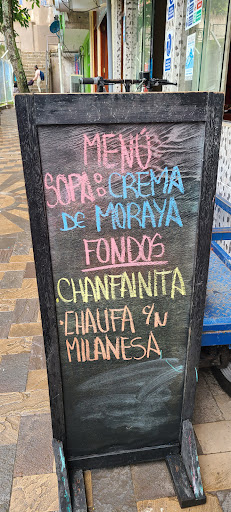 MENÚ
SOPA: CREMA
DE MORAYA
FONDOS
.CHANFAINITA
.CHAUFA c/N
MILANESA